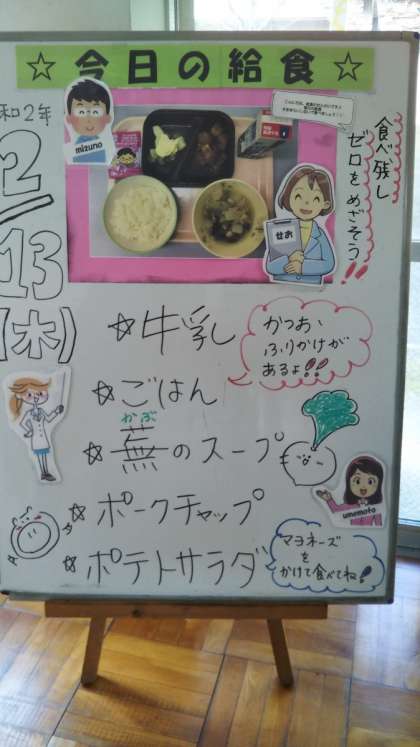 ☆今日の給食☆
和2年
2/13
(木)
mizuno
せお
食べ残し
ゼロをめざそう!!
☆牛乳
かつおふりかけが
あるよ!!
☆ごはん
かぶ
☆蕪のスープ
☆ポークチャップ
umemoto
☆ポテトサラダ
マヨネーズ
を
かけて食べてね!